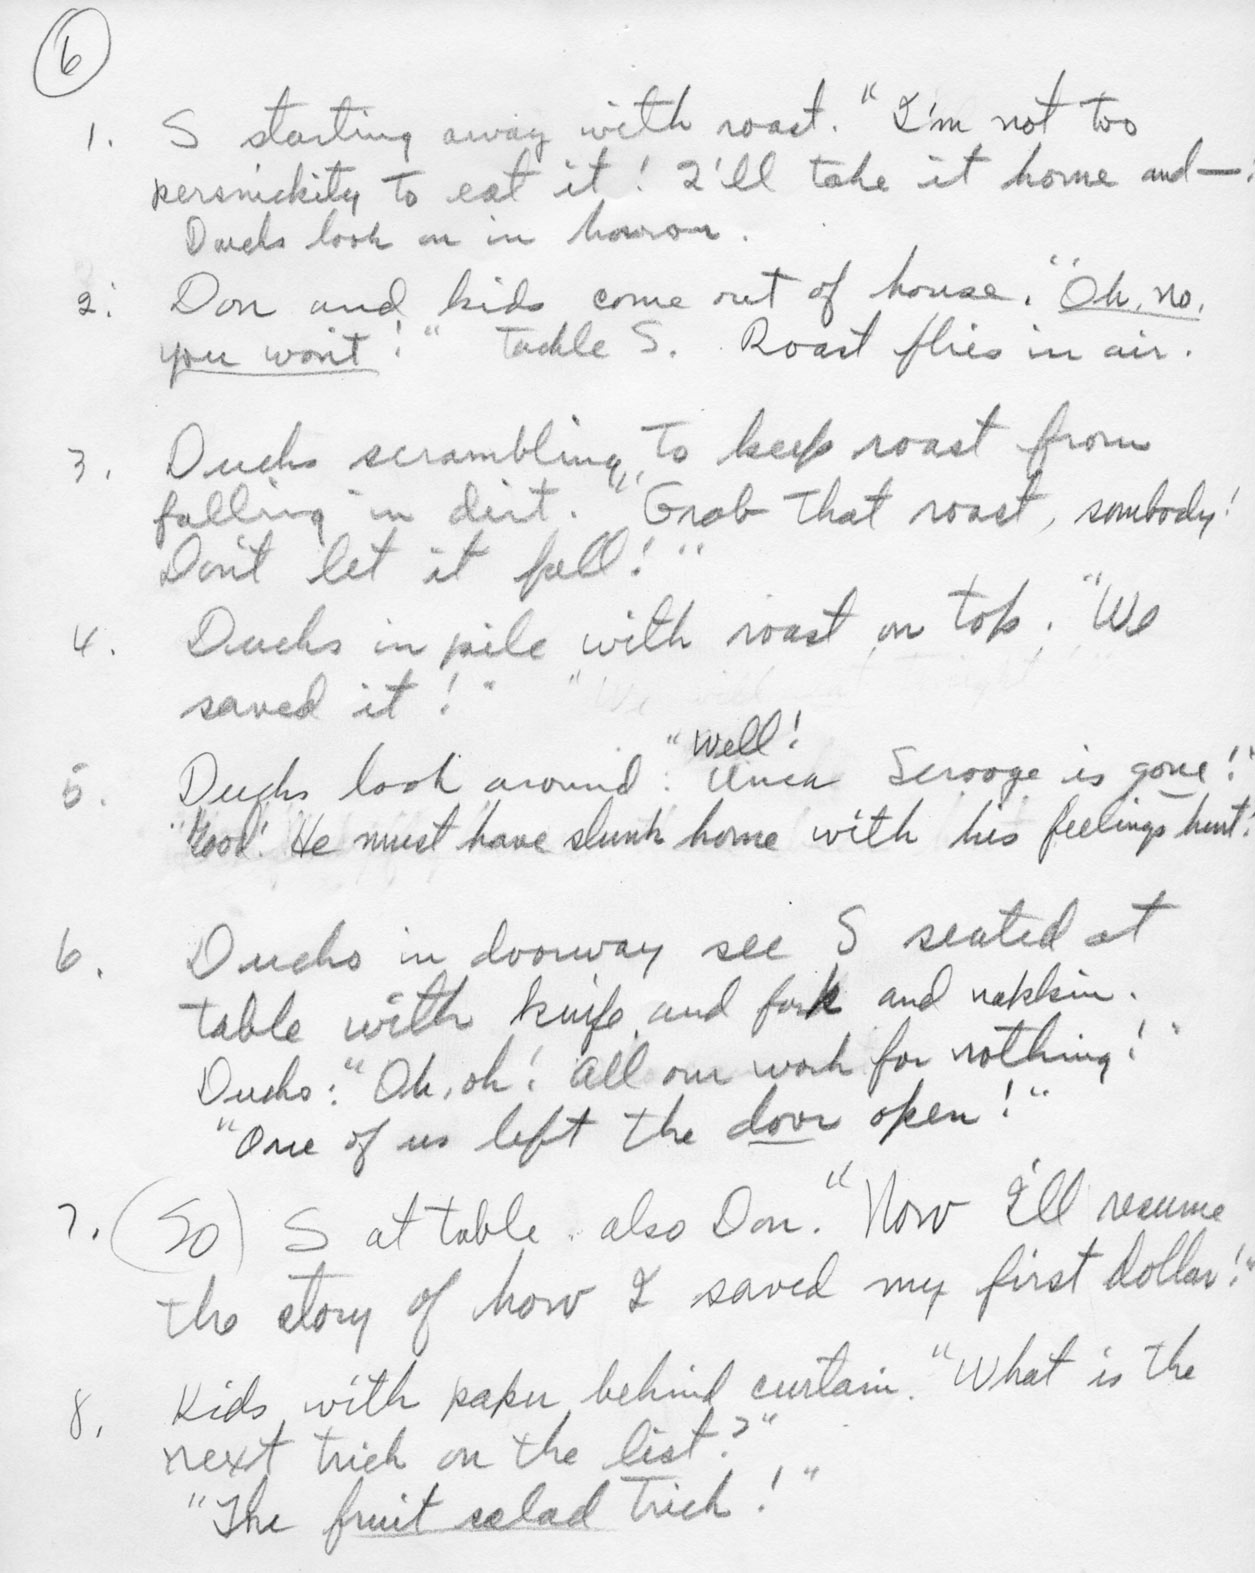 6
1. S starting away with roast. "I'm not too
persnickity to eat it! I'll take it home and—!
Ducks look on in horror.
2. Don and kids come out of house. "Oh, no,
you won't!" Tackle S. Roast flies in air.
3. Ducks scrambling to keep roast from
falling in dirt. "Grab that roast, sombody!
Don't let it fall!"
4. Ducks in pile with roast on top. "We
saved it!"
"Well!
5. Ducks look around. Unca Scrooge is gone!"
"Good! He must have slunk home with his feelings hurt!
6. Ducks in doorway see S seated at
table with knife and fork and napkin.
Ducks: "Oh, oh! All our work for nothing!"
"One of us left the door open!"
7. (So) S at table also Don. "Now I'll resume
the story of how I saved my first dollar!"
8. Kids with paper behind curtain. "What is the
next trick on the list?"
"The fruit salad trick!"